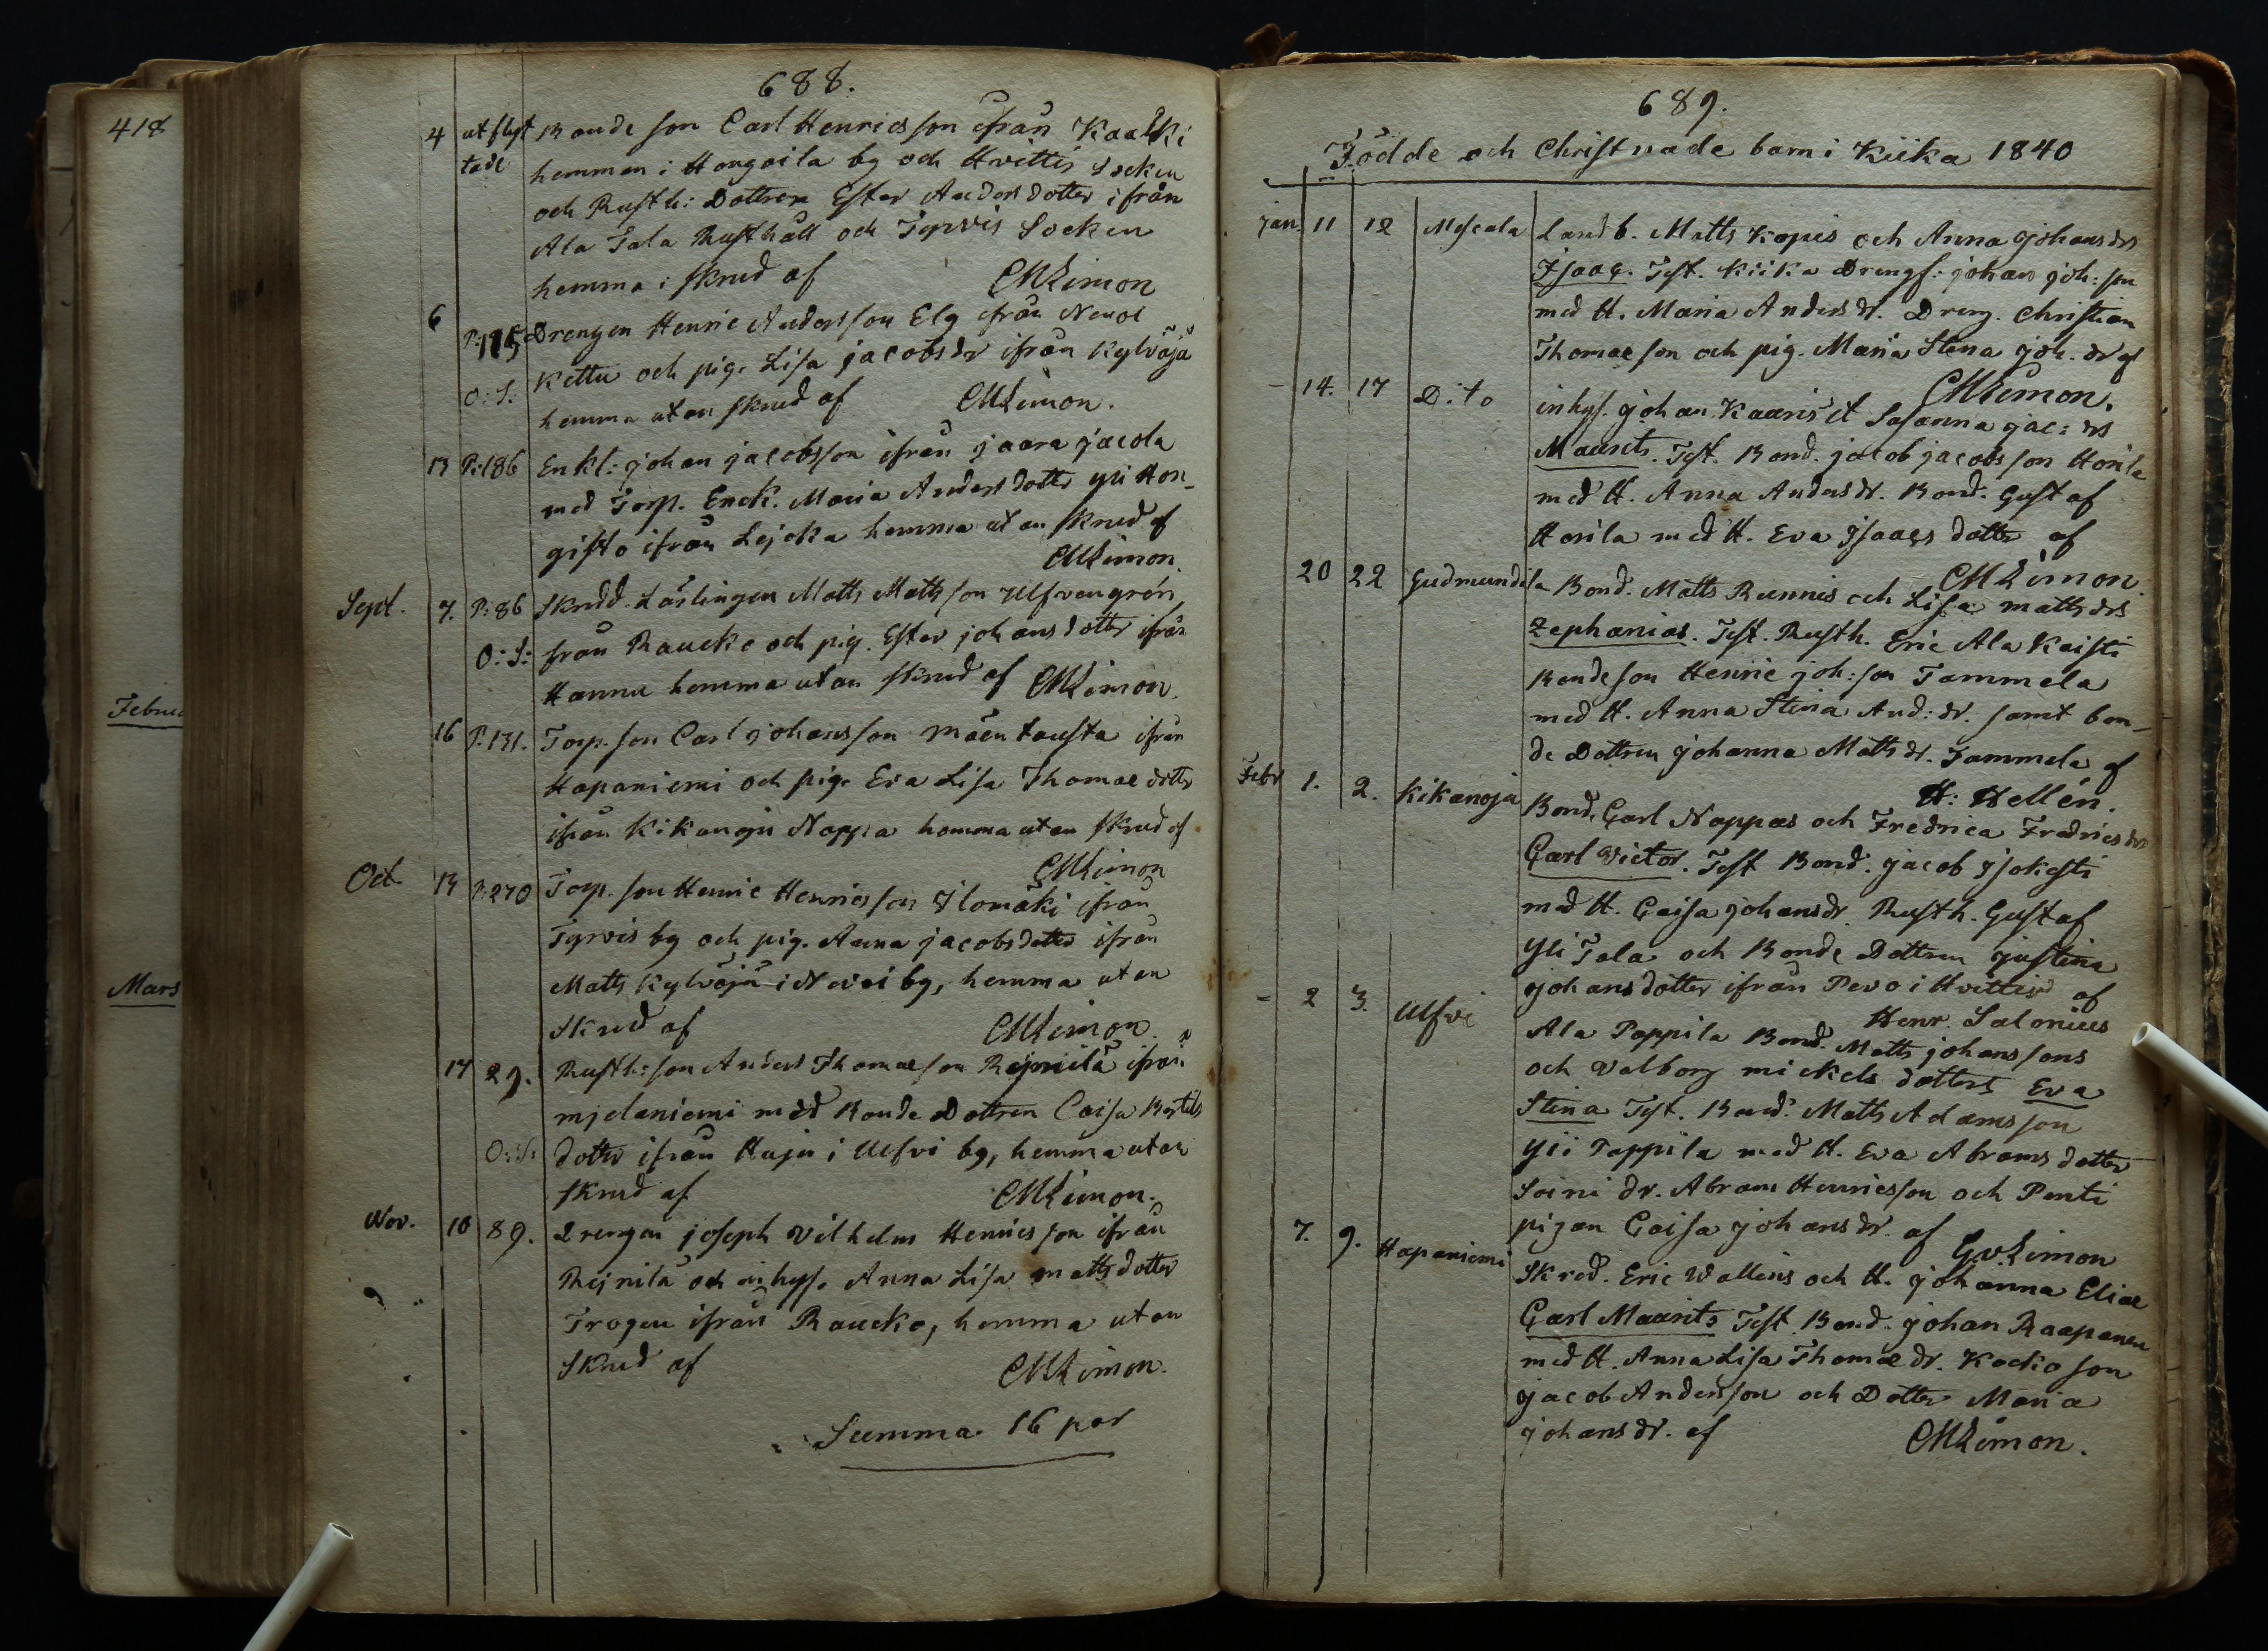 418
Februa
Mars
688.
4 utflyt Bonde son Carl Henricsson ifrån Kaalki
tade hemman i Hongoila by och Hvittis Socken
och Rusth: Dottren Ester Anders dotter ifrån
Ala Tala Rusthåll och Tyrvis Socken
hemma i skrud af CMLimon
6 P:175 Drengen Henric Andersson Elg ifrån Nemoe
Kettu och pig. Lisa jacobsdr ifrån Kylväjä
O:S: hemma utan skrud af CMLimon.
13 P:186 Enkl: johan jacobsson ifrån jaara jacola
med Torp. Enck. Maria Anders dotter yli Hon-
gisto ifrån Lejcka hemma utan skrud af
CMLimon.
Sept. 7. P:86 Skrädd. Lärlingen Matts Mattsson Ulfvengrén
O:S: från Raucko och pig. Ester johans dotter ifrån
Hannu hemma utan skrud af CMLimon.
16 P:131. Torp. son Carl johansson mäentausta ifrån
Hapaniemi och pig. Eva Lisa Thomae dotter
ifrån Kikanoja Nappa hemma utan skrud af
CMLimon
Oct. 13 P:270 Torp. son Henric Henricsson Ylomäki ifrån
Tyrvis by och pig. Anna jacobs dotter ifrån
Matts Kylväjä i Novi by, hemma utan
Skrud af CMLimon.
17 29. Rusth: son Anders Thomasson Rejnilä ifrån
mjelaniemi med Bonde Dottren Caisa Bertils
O:S: dotter ifrån Huju i Ulfvi by, hemma utan
skrud af CMLimon.
Nov. 10 89. Drengen joseph Vilhelm Henricsson ifrån
Rejnilä och inhys. Anna Lisa matts dotter
Trogen ifrån Raucko, hemma utan
Skrud af CMLimon.
Summa 16 par
689.
Födde och Christnade barn i Kiika 1840
jan. 11 12 Meskala Landb. Matts Kopis och Anna johans drs
Isaac. Test. Kiika Drengs: johan joh: son
med H. Maria Anders dr. Dreng. Christian
Thomae son och pig. Maria Stina joh. dr af
CMLimon.
- 14. 17 Dito inhys. johan Kaaris et Susanna jac: drs
Maurits. Test. Bond. jacob jacobsson Horila
med H. Anna Anders dr. Bond. Gustaf
Horila med H. Eva Isaacs dotter af
CMLimon.
20 22 Gudmundila Bond. Matts Runnis och Lisa matts drs
Zephanias. Test. Rusth. Eric Ala Kaisti
Bondeson Henric joh: son Tammela
med H. Anna Stina And: dr. samt bon-
de Dottren johanna Matts dr. Tammela af
H: Hellén.
Febr 1. 2. Kikanoja Bond. Carl Nappas och Fredrica Fredrics drs
Carl Victor. Test Bond. jacob Isokesti
med H. Caisa johansdr Rusth. Gustaf
Yli Tala och Bonde Dottren justina
johans dotter ifrån Pevo i Hvittis af
Henr. Salonius
- 2 3. Ulfvi Ala Pappila Bond. Matts johanssons
och Valborg mickels dotters Eva
Stina Test. Bond. Matts Adamsson
Yli Pappila med H. Eva Abrams dotter
Soini dr. Abram Henricsson och Penti
pigan Caisa johans dr. af GvLimon
7. 9. Hapaniemi Skred. Eric Wallens och H. johanna Eliae
Carl Maurits Test. Bond. johan Raapanen
med H. Anna Lisa Thomae dr. Kocko son
jacob Andersson och Dotter Maria
johans dr. af CMLimon.